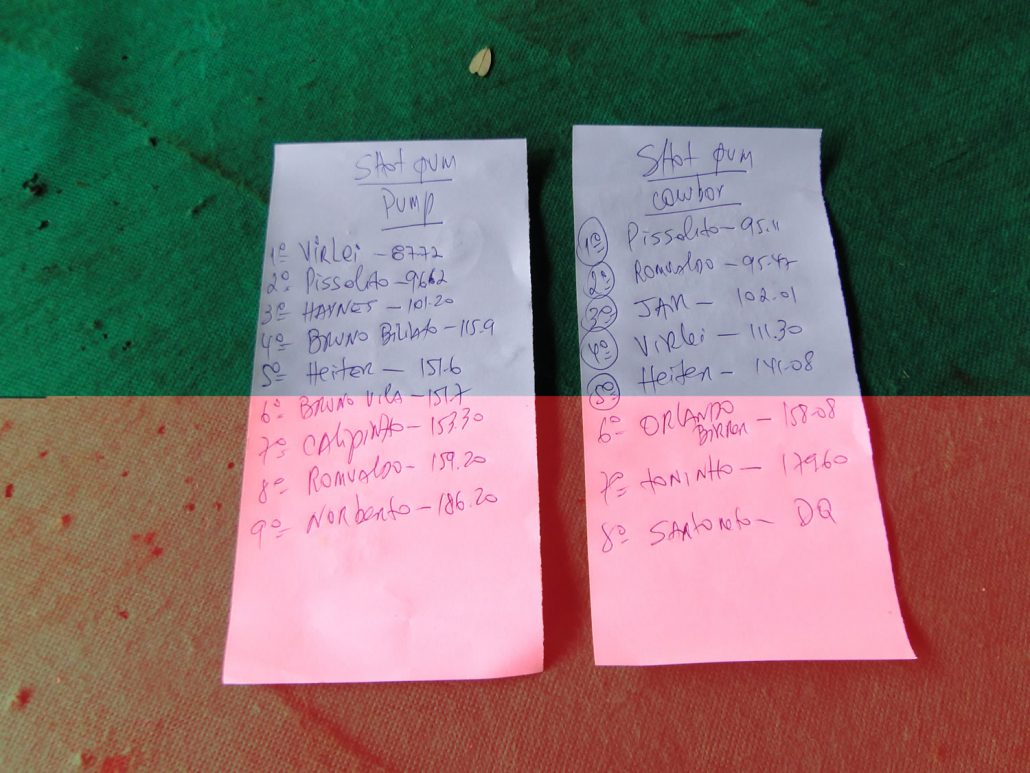 SHOT GUM
PUMP
1º VIRLEI - 8772
2º PISSOLATO - 9662
3º HAYNES - 101.20
4º BRUNO BILIATO - 115.9
5º Heiter - 151.6
6º BRUNO VILA - 151.7
7º CALIPINTO - 153.30
8º ROMUALDO - 159.20
9º NORBERTO - 186.20
SHOT GUM
COWBOY
1º PISSOLATO - 95.11
2º ROMUALDO - 95.47
3º JAM - 102.01
4º VIRLEI - 111.30
5º Heiter - 141.08
6º ORLANDO - 158.08
7º TONINHO - 179.60
8º - DQ